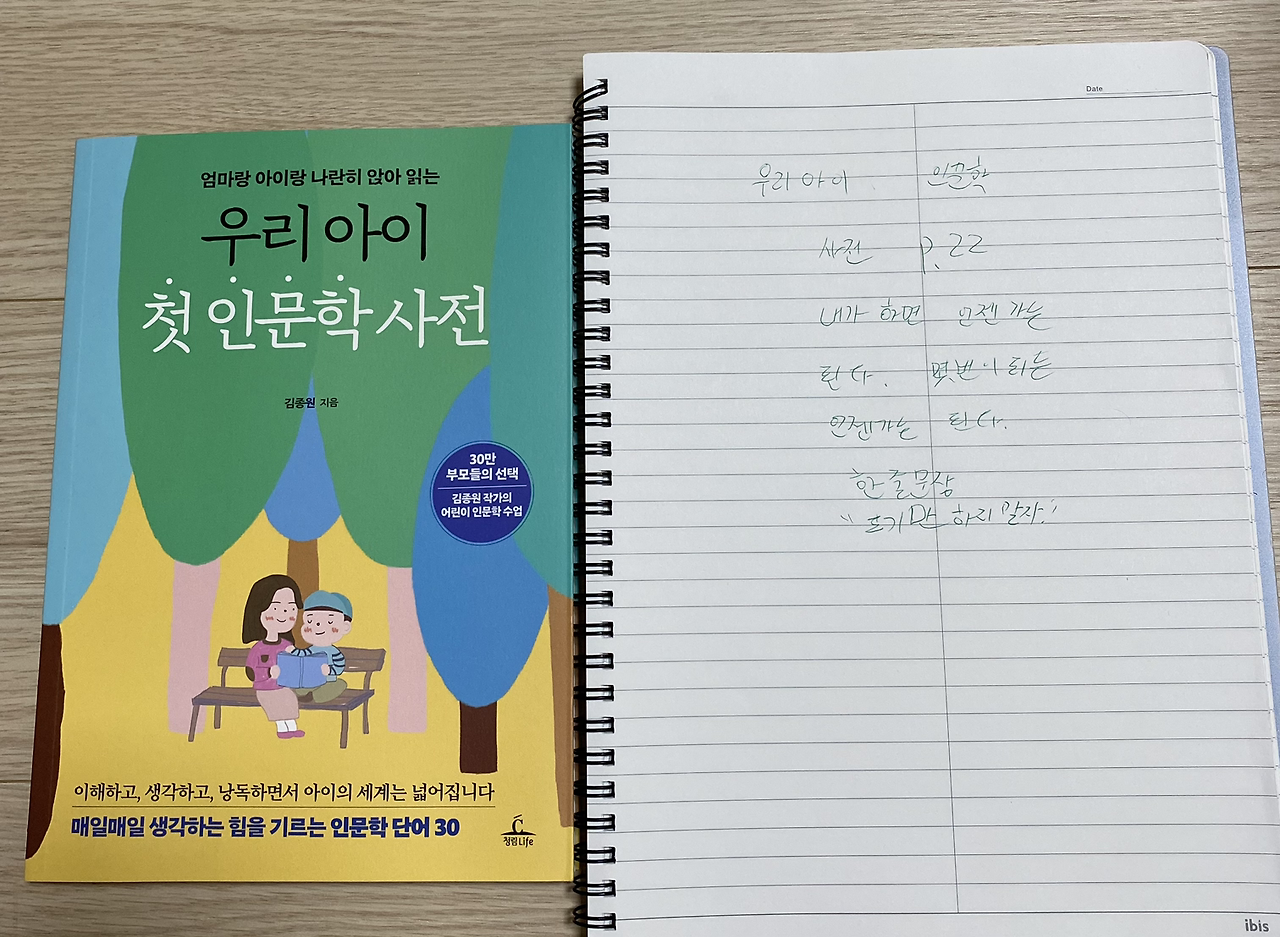 엄마랑 아이랑 나란히 앉아 읽는
우리 아이
첫 인문학 사전
김종원 지음
30만
부모들의 선택
김종원 작가의
어린이 인문학 수업
이해하고, 생각하고, 낭독하면서 아이의 세계는 넓어집니다
매일매일 생각하는 힘을 기르는 인문학 단어 30
청림Life
Date
우리 아이
사전 p.22
내가 하면 언젠가는
된다. 몇번이 되든
언젠가는 된다.
한 줄 문장
"포기만 하지 말자."
ibis